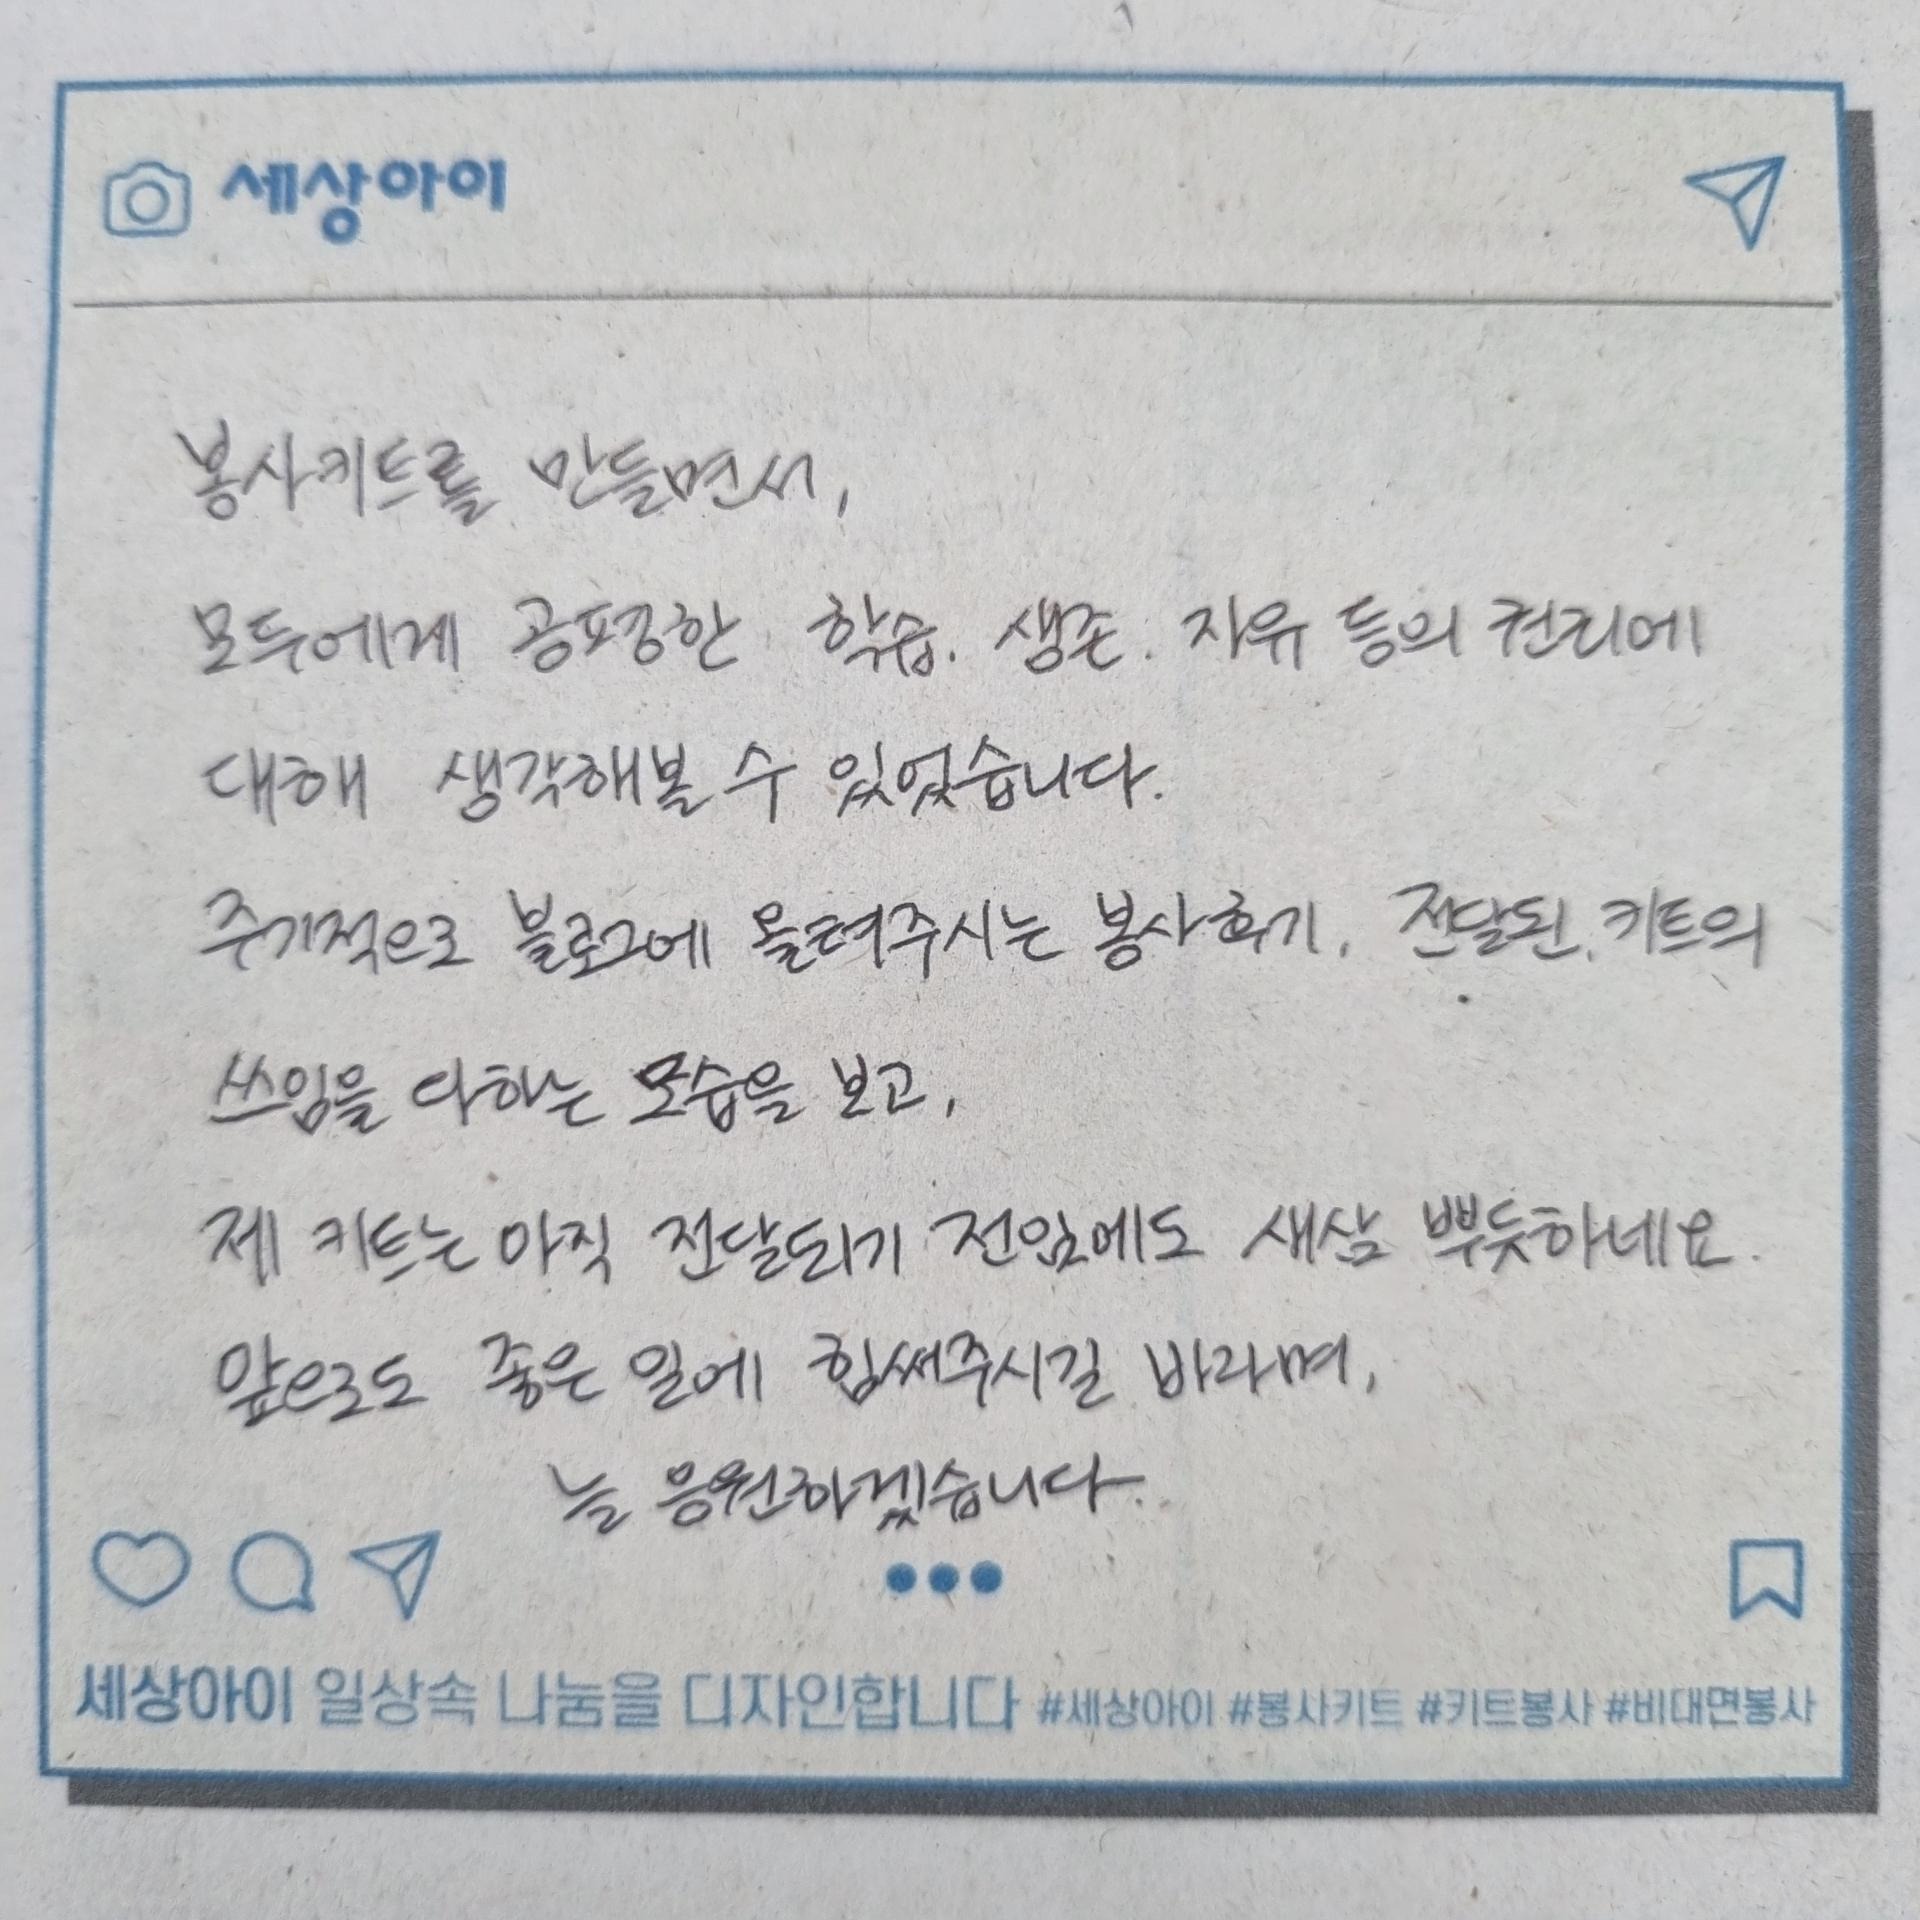 세상아이
봉사키트를 만들면서,
모두에게 공평한 학습. 생존. 자유 등의 권리에
대해 생각해볼 수 있었습니다.
주기적으로 블로그에 올려주시는 봉사후기, 전달된 키트의
쓰임을 다하는 모습을 보고,
제 키트는 아직 전달되기 전임에도 새삼 뿌듯하네요.
앞으로도 좋은 일에 힘써주시길 바라며,
늘 응원하겠습니다.
세상아이 일상속 나눔을 디자인합니다 #세상아이 #봉사키트 #키트봉사 #비대면봉사